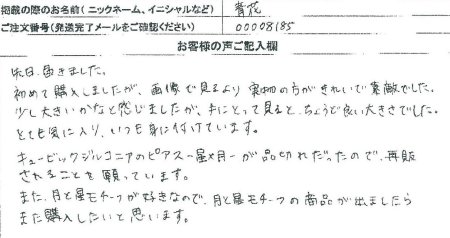 掲載の際のお名前(ニックネーム、イニシャルなど) 青花
ご注文番号(発送完了メールをご確認ください) 00008185
お客様の声ご記入欄
昨日、届きました。
初めて購入しましたが、画像で見るより実物の方がきれいで素敵でした。
少し大きいかなと感じましたが、手にとって見ると、ちょうど良い大きさでした。
とても気に入り、いつも身に付けています。
キュービックジルコニアのピアス〜星×月〜が品切れだったので、再販
されることを願っています。
また、月と星モチーフが好きなので、月と星モチーフの商品が出ましたら
また購入したいと思います。